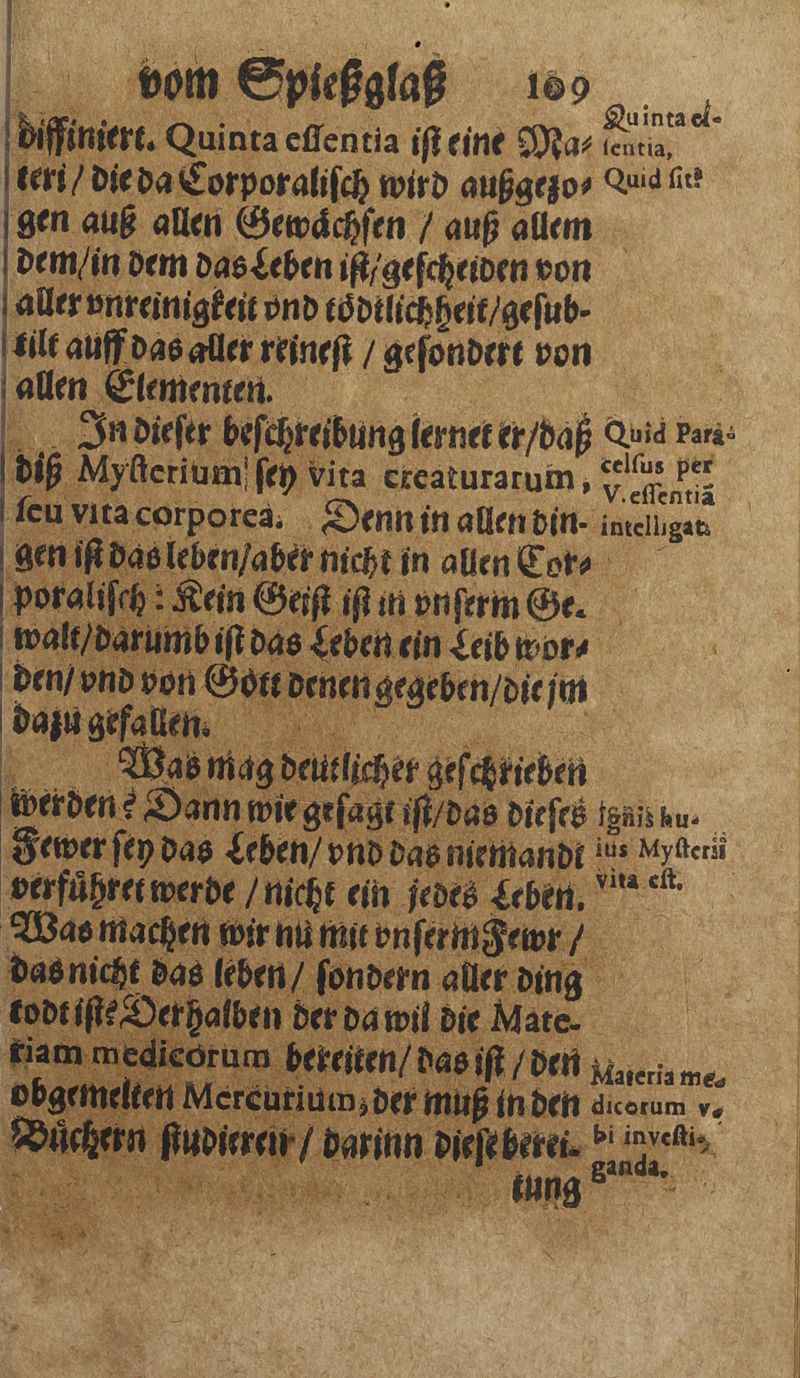 vom Spießglaß 109
diffiniert. Quinta essentia ist eine Ma⸗
teri / die da Corporalisch wird außgezo⸗
gen auß allen Gewächsen / auß allem
dem/in dem das Leben ist/gescheiden von
aller vnreinigkeit vnd tödtlichheit/gesub-
tilt auff das aller reinest / gesondert von
allen Elementen.
Quinta es-
sentia,
Quid sit?
In dieser beschreibung lernet er/daß
diß Mysterium sey vita creaturarum,
seu vita corporea. Denn in allen din-
gen ist das leben/aber nicht in allen Cor⸗
poralisch: Kein Geist ist in vnserm Ge-
walt/darumb ist das Leben ein Leib wor⸗
den/ vnd von Gott denen gegeben/die jm
dazu gefallen.
Quid Para-
celsus per
V. essentiã
intelligat.
Was mag deutlicher geschrieben
werden? Dann wie gesagt ist/das dieses
Fewer sey das Leben/ vnd das niemandt
verführet werde / nicht ein jedes Leben.
Was machen wir nu mit vnserm Fewr /
das nicht das leben/ sondern aller ding
todt ist? Derhalben der da wil die Mate-
riam medicorum bereiten/ das ist / den
obgemelten Mercurium, der muß in den
Büchern studieren / darinn diese berei-
tung
Ignis hu-
ius Mysterii
vita est.
Materia me-
dicorum v-
bi investi-
ganda.